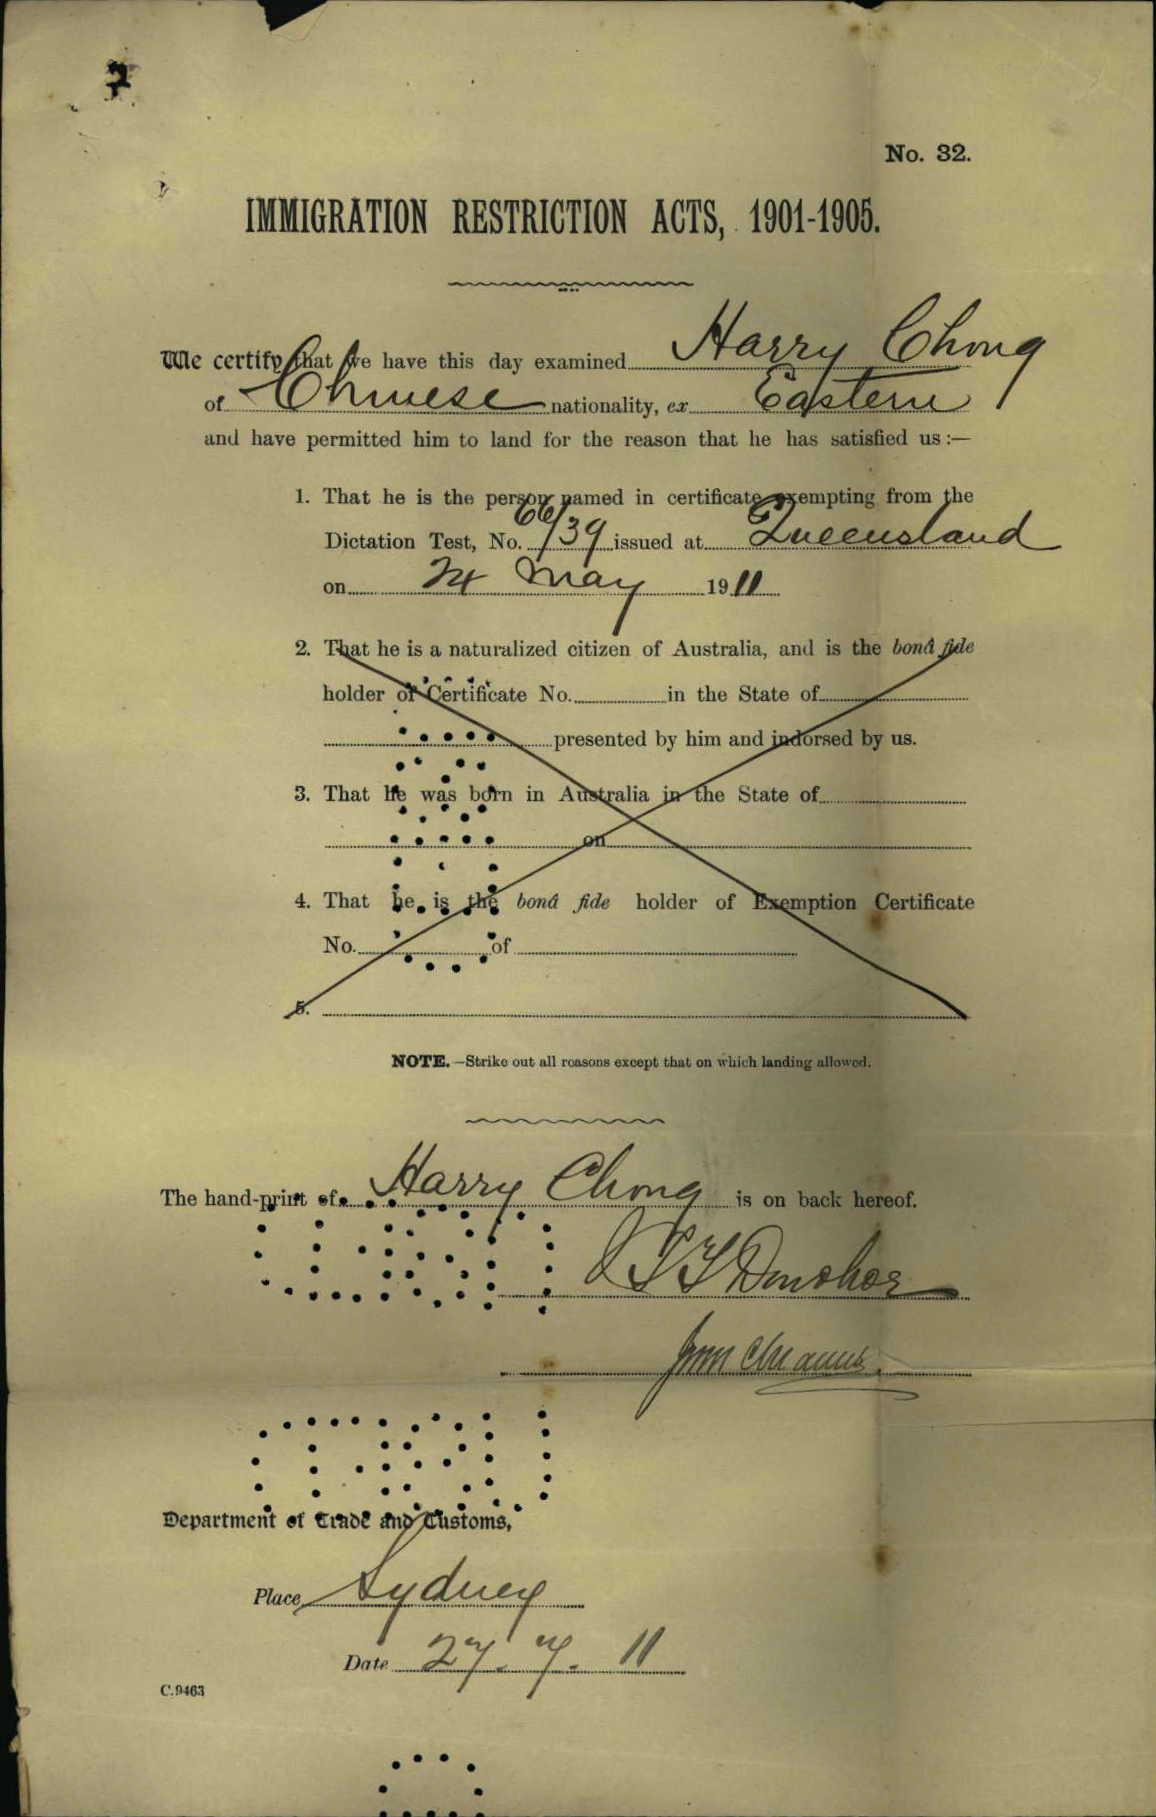 7
No. 32.
IMMIGRATION RESTRICTION ACTS, 1901-1905.
We certify that we have this day examined Harry Chong
of Chinese nationality, ex Eastern
and have permitted him to land for the reason that he has satisfied us :—
1. That he is the person named in certificate exempting from the
Dictation Test, No. 66/39 issued at Queensland
on 24 May 1911
2. That he is a naturalized citizen of Australia, and is the bonâ fide
holder of Certificate No. in the State of
presented by him and indorsed by us.
3. That he was born in Australia in the State of
on
4. That he is the bonâ fide holder of Exemption Certificate
No. of
5.
NOTE.—Strike out all reasons except that on which landing allowed.
The hand-print of Harry Chong is on back hereof.
Donohoe
Department of Trade and Customs,
Place Sydney
Date 27. 7. 11
C.9463